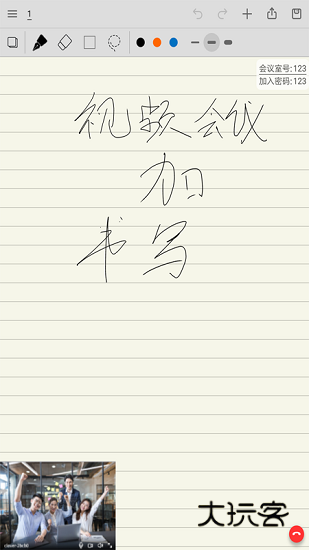 1
会议室号:123
加入密码:123
视频会议
加
书写
大玩客